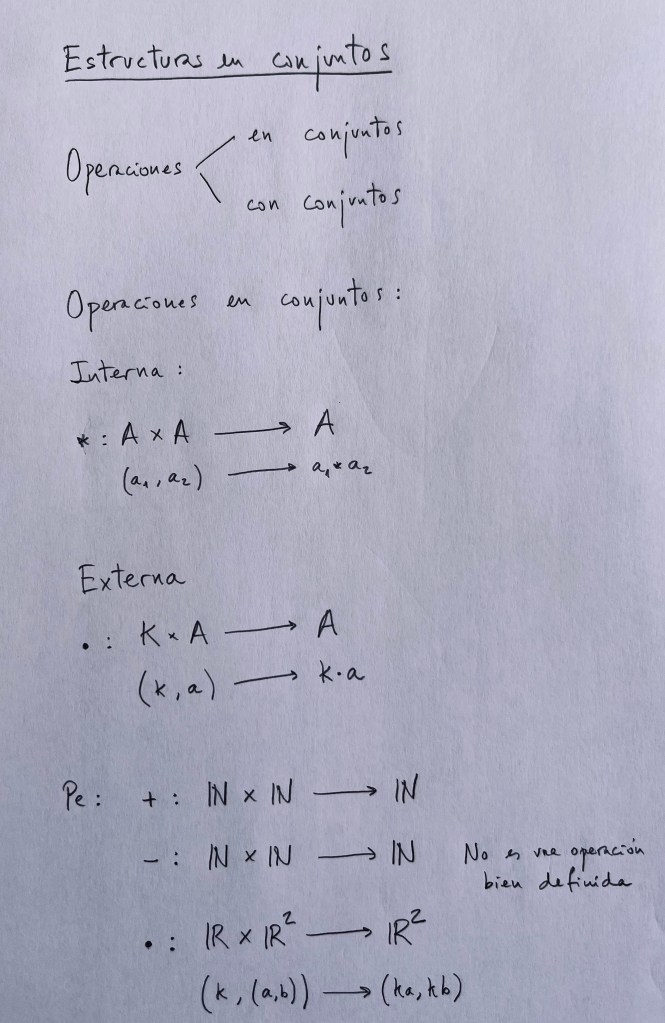 Estructuras en conjuntos
en conjuntos
Operaciones
con conjuntos
Operaciones en conjuntos:
Interna:
* : A × A ⟶ A
(a₁, a₂) ⟶ a₁ * a₂
Externa
• : K × A ⟶ A
(k, a) ⟶ k·a
Pe: + : ℕ × ℕ ⟶ ℕ
- : ℕ × ℕ ⟶ ℕ No es una operación
bien definida
• : ℝ × ℝ² ⟶ ℝ²
(k, (a,b)) ⟶ (ka, kb)